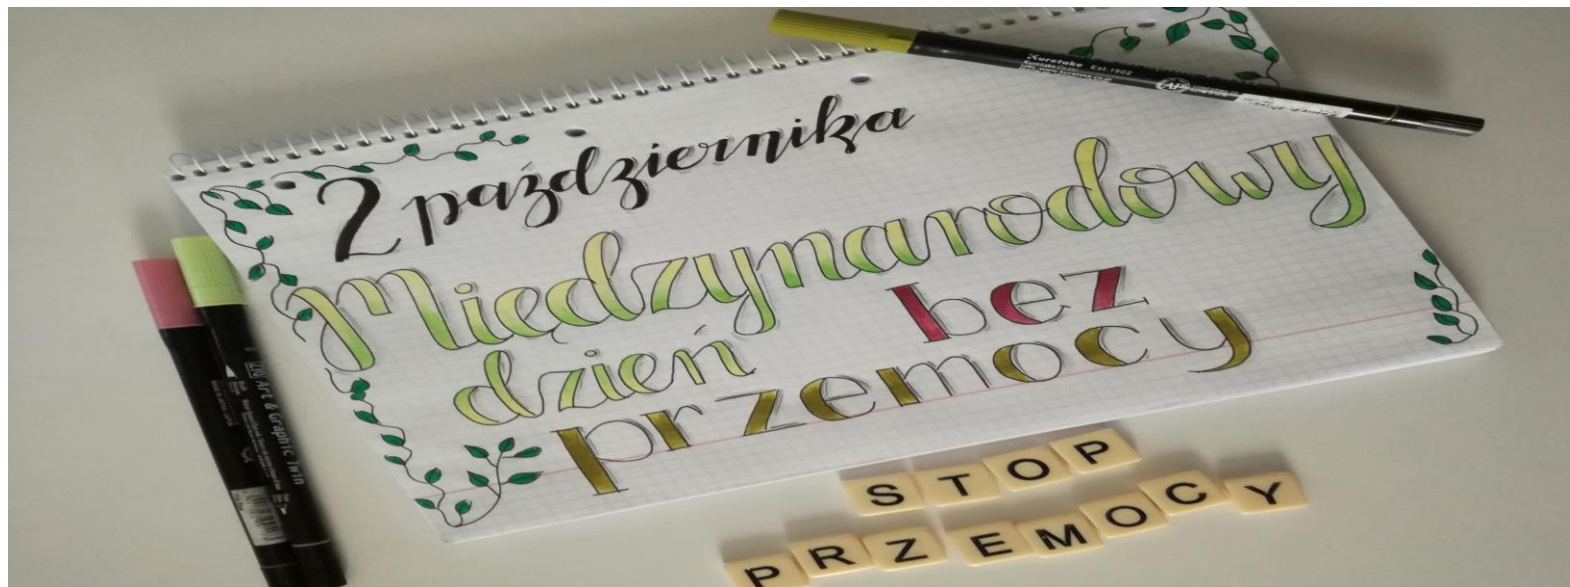 2 października
Międzynarodowy
dzień bez
przemocy
STOP
PRZEMOCY
Kuretake Est.1902
Art & Graphic Twin